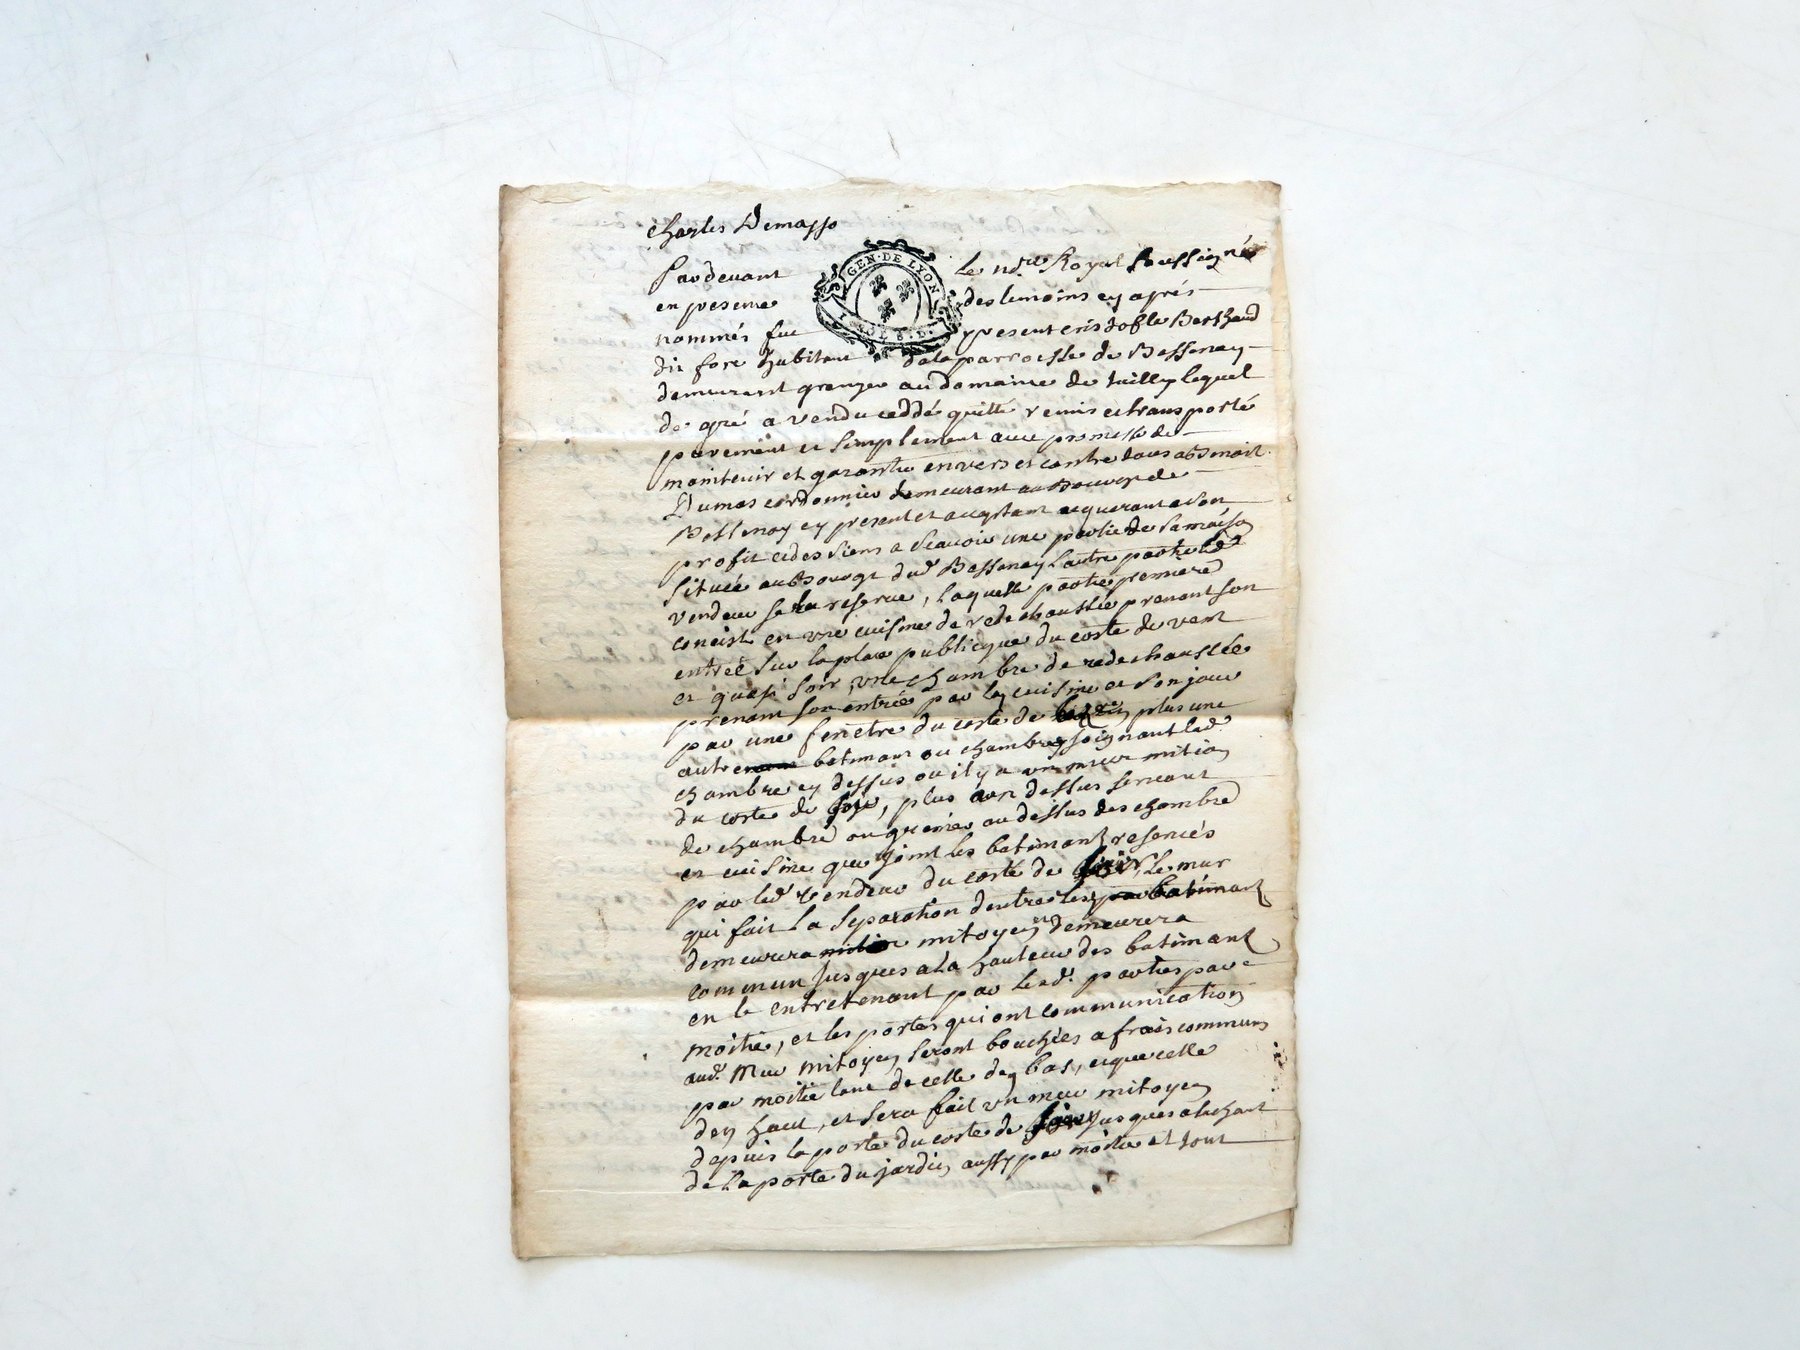 Charles Demasso
GEN·DE LYON
Pardevant le no.re Royal soussigné
en presence des temoins cy aprés
nommés fut present cristofle Berthaud
dit fore habitant dela parroisse de Bessenay
demeurant granger au domaine de tuilly lequel
de gré a vendu ceddé quitté remis et transporté
purement et simplement avec promesse de
maintenir et garantir envers et contre tous a
Dumas cordonnier demeurant au Bourg de
Bessenay cy present et acceptant acquerant a son
profit et des siens a scavoir une partie de sa maison
située au Bourgt dud Bessenay lautre partie led
vendeur se la reserve, laquelle partie premiere
concist en vne cuisine de rede chaussée prenant son
entréé sur la place publicque du costé de vent
et quasi soir, vne chambre de rede chaussée
prenant son entrée par la cuisine et son jour
par une fenetre du costé de plus une
autre batimant ou chambre joignant lad
chambre cy dessus ou il y a un mur mitoien
du costé de , plus dessus servant
de chambre ou grenier au dessus des chambre
et cuisine que joint les batimant reservés
par led vendeur du costé de soir, Le mur
qui fait La separation dentre les batimant
demeurera mitoyen et demeurera
commun jusques a la hauteur des batimant
en le entretenant par lesd. parties par
moitie, et les portes qui ont communication
aud. mur mitoyen seront bouchées a frais communs
par moitié tant de celle den bas, et que celle
den haut, et sera fait vn mur mitoyen
depuis la porte du costé de jusques a
de la porte du jardin aussy par moitie et tout